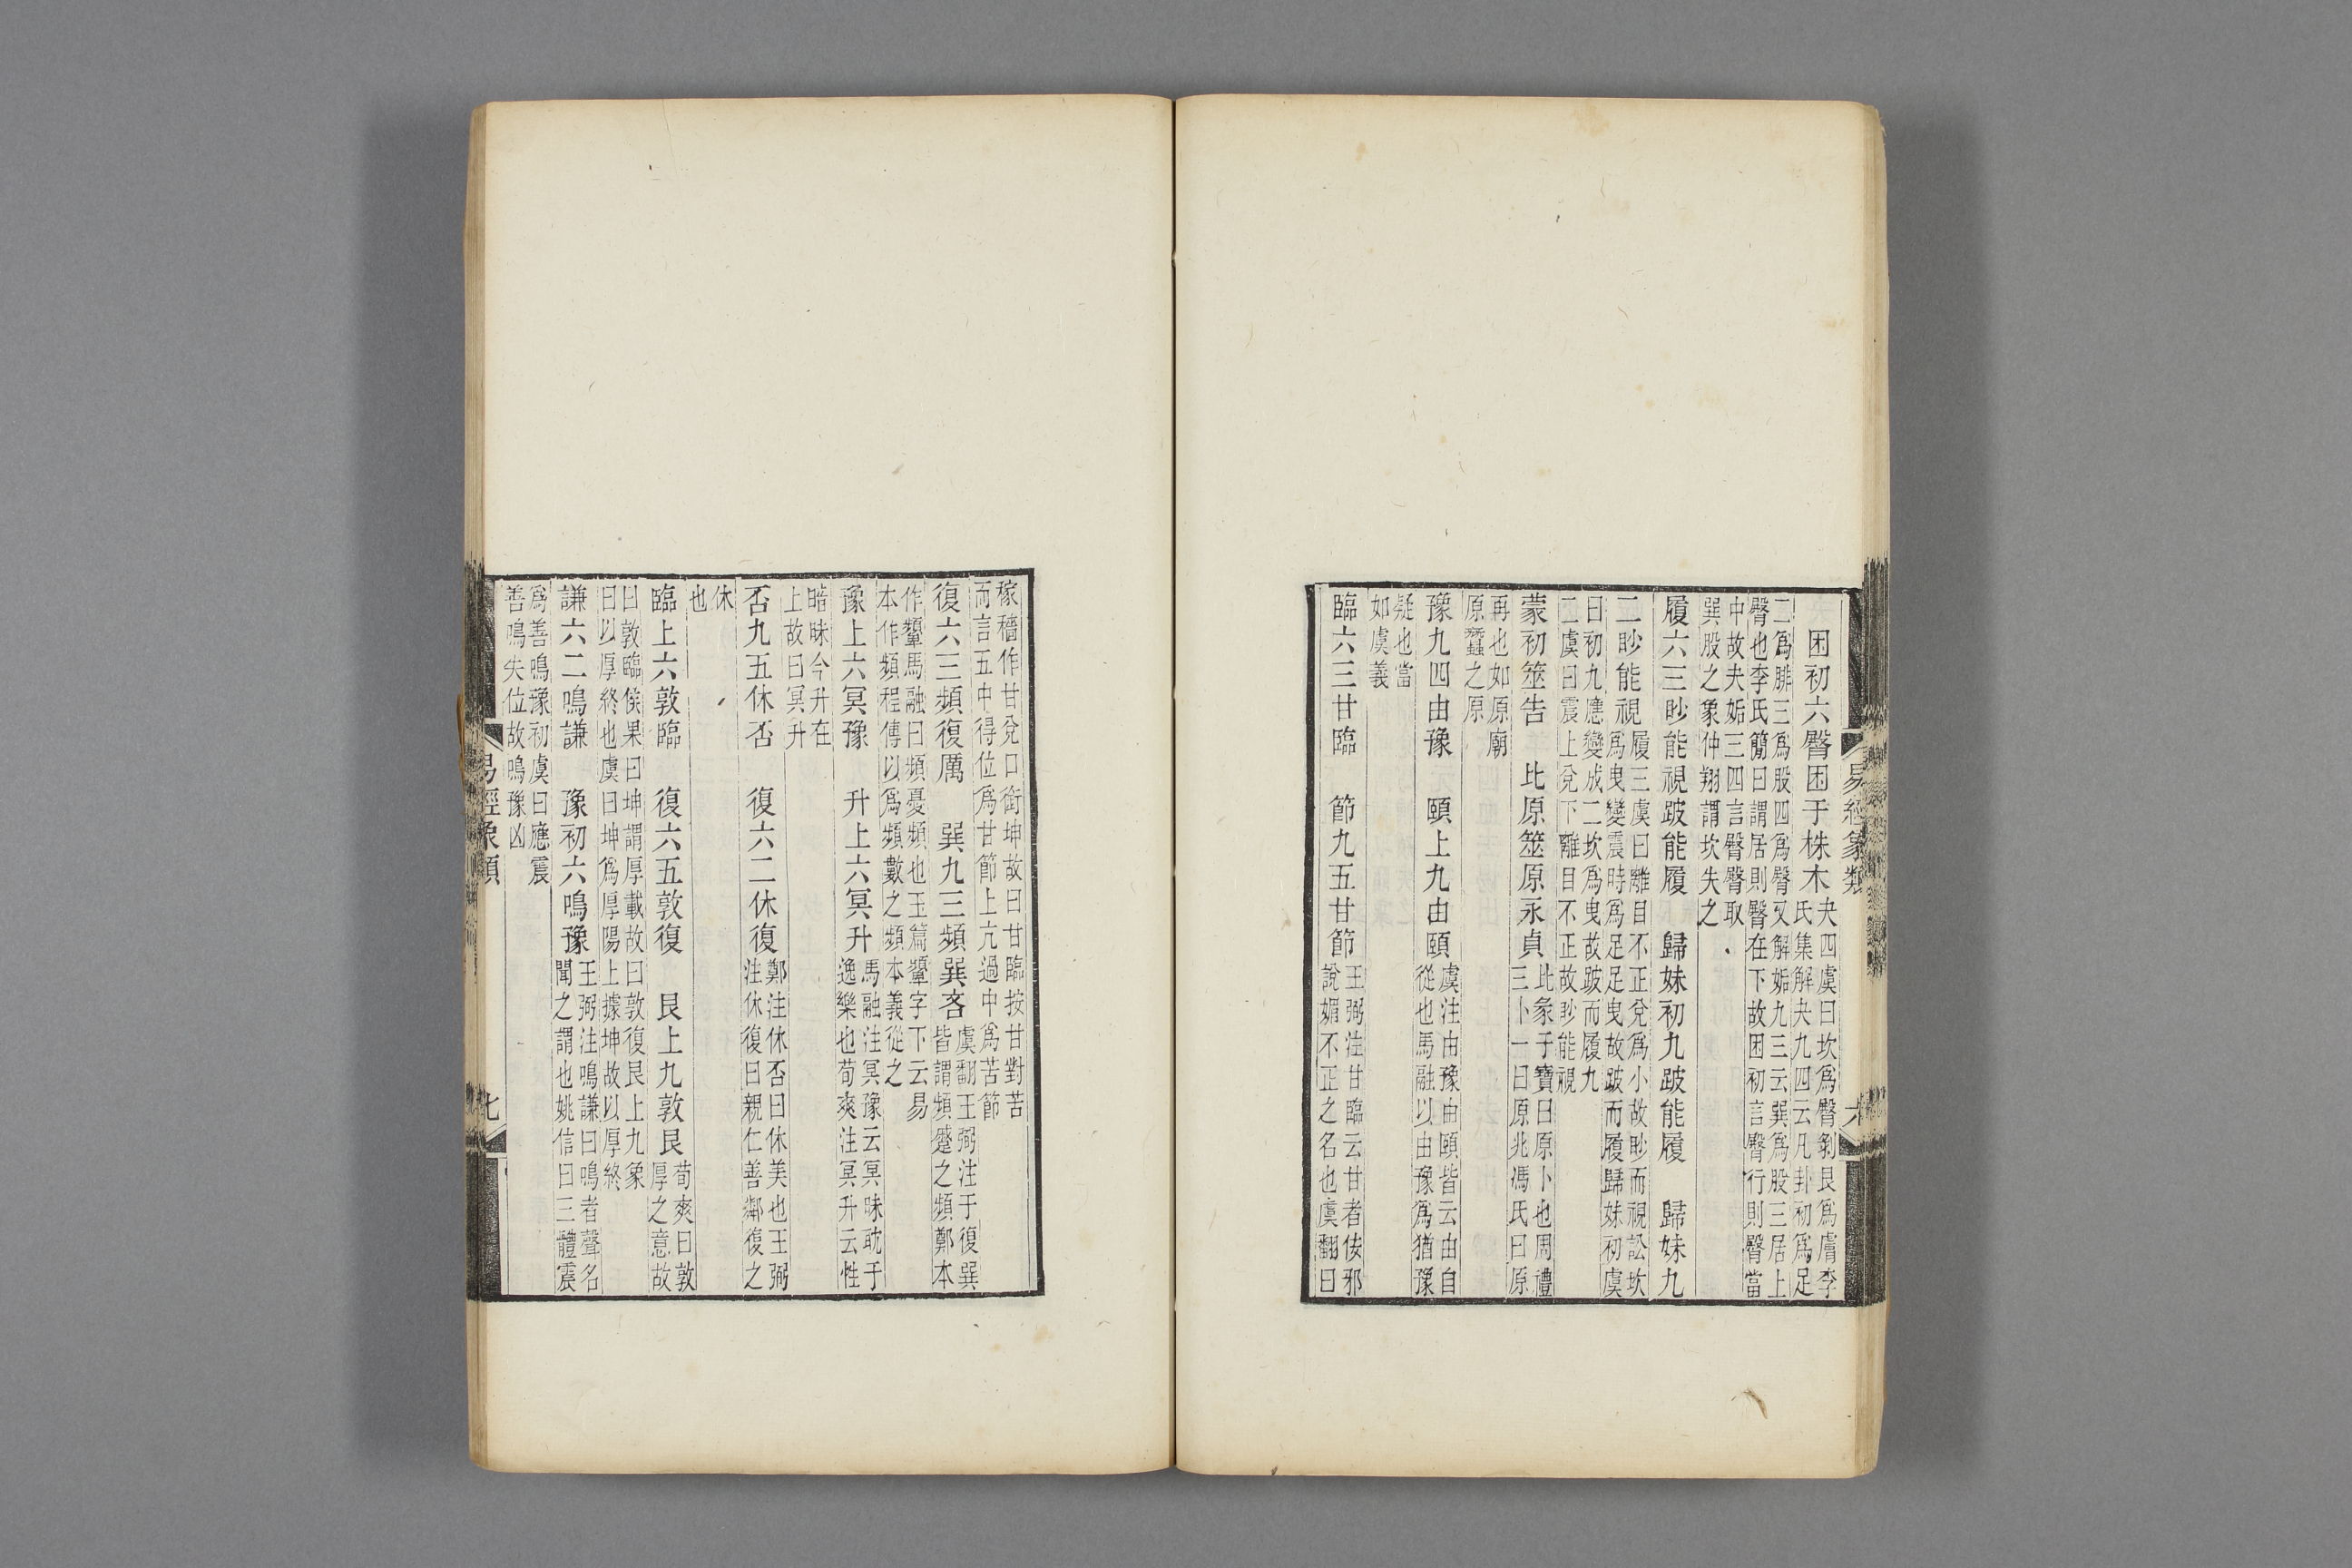 易經象類
六
困初六臀困于株木
夬四虞曰坎爲臀剝艮爲膚李
氏集解夬九四云凡卦初爲足
二爲腓三爲股四爲臀又解姤九三云巽爲股三居上
臀也李氏簡曰謂居則臀在下故困初言臀行則臀當
中故夬姤三四言臀臀取
巽股之象仲翔謂坎失之
履六三眇能視跛能履 歸妹初九跛能履 歸妹九
二眇能視
履三虞曰離目不正兌爲小故眇而視訟坎
爲曳變震時爲足足曳故跛而履歸妹初虞
曰初九應變成二坎爲曳故跛而履九
二虞曰震上兌下離目不正故眇能視
蒙初筮告 比原筮原永貞
比象子寶曰原卜也周禮
三卜一曰原兆馮氏曰原
再也如原廟
原蠶之原
豫九四由豫 頤上九由頤
虞注由豫由頤皆云由自
從也馬融以由豫爲猶豫
疑也當
如虞義
臨六三甘臨 節九五甘節
王弼注甘臨云甘者佞邪
說媚不正之名也虞翻曰
稼穡作甘兌口銜坤故曰甘臨按甘對苦
而言五中得位爲甘節上亢過中爲苦節
復六三頻復厲 巽九三頻巽吝
虞翻王弼注于復巽
皆謂頻蹙之頻鄭本
作顰馬融曰頻憂頻也玉篇顰字下云易
本作頻程傳以爲頻數之頻本義從之
豫上六冥豫 升上六冥升
馬融注冥豫云冥昧耽于
逸樂也荀爽注冥升云性
暗昧今升在
上故曰冥升
否九五休否 復六二休復
鄭注休否曰休美也王弼
注休復曰親仁善鄰復之
休
也
臨上六敦臨 復六五敦復 艮上九敦艮
荀爽曰敦
厚之意故
曰敦臨侯果曰坤謂厚載故曰敦復艮上九象
曰以厚終也虞曰坤爲厚陽上據坤故以厚終
謙六二鳴謙 豫初六鳴豫
王弼注鳴謙曰鳴者聲名
聞之謂也姚信曰三體震
爲善鳴豫初虞曰應震
善鳴失位故鳴豫凶
易經象類
七